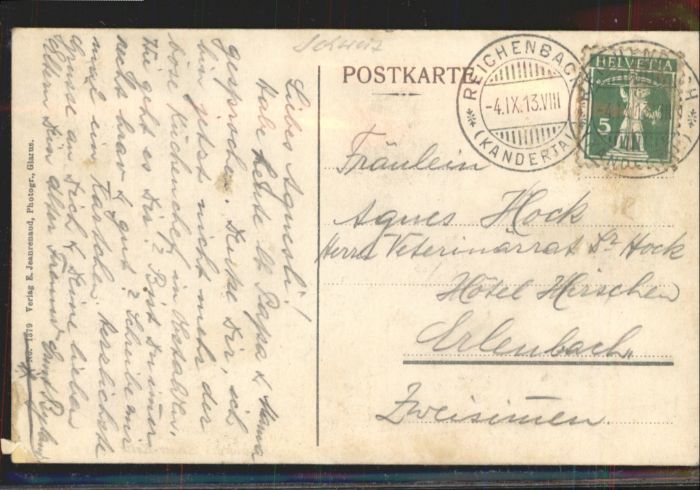 Schweiz
POSTKARTE
REICHENBACH
-4.IX.13.VIII
(KANDERTAL)
HELVETIA
5
Fräulein
Agnes Hock
Herrn Veterinärrat Dr Hock
Hôtel Hirschen
Erlenbach
Zweisimen
Liebes Agnesli!
Habe heute lt Papa & Mama
gesprochen. Denke Dir, ich
bin jetzt nicht mehr der
böse Küchenchef in Obstalden.
Wie geht es Dir? Bist Du immer
recht brav & gut? Schreibe mir
mal ein Kärtchen. Herzlichste
Grüsse an Dich & Deine lieben
Eltern Dein alter Freund Ernst
No. 1879 Verlag E. Jeanrenaud, Photogr., Glarus.